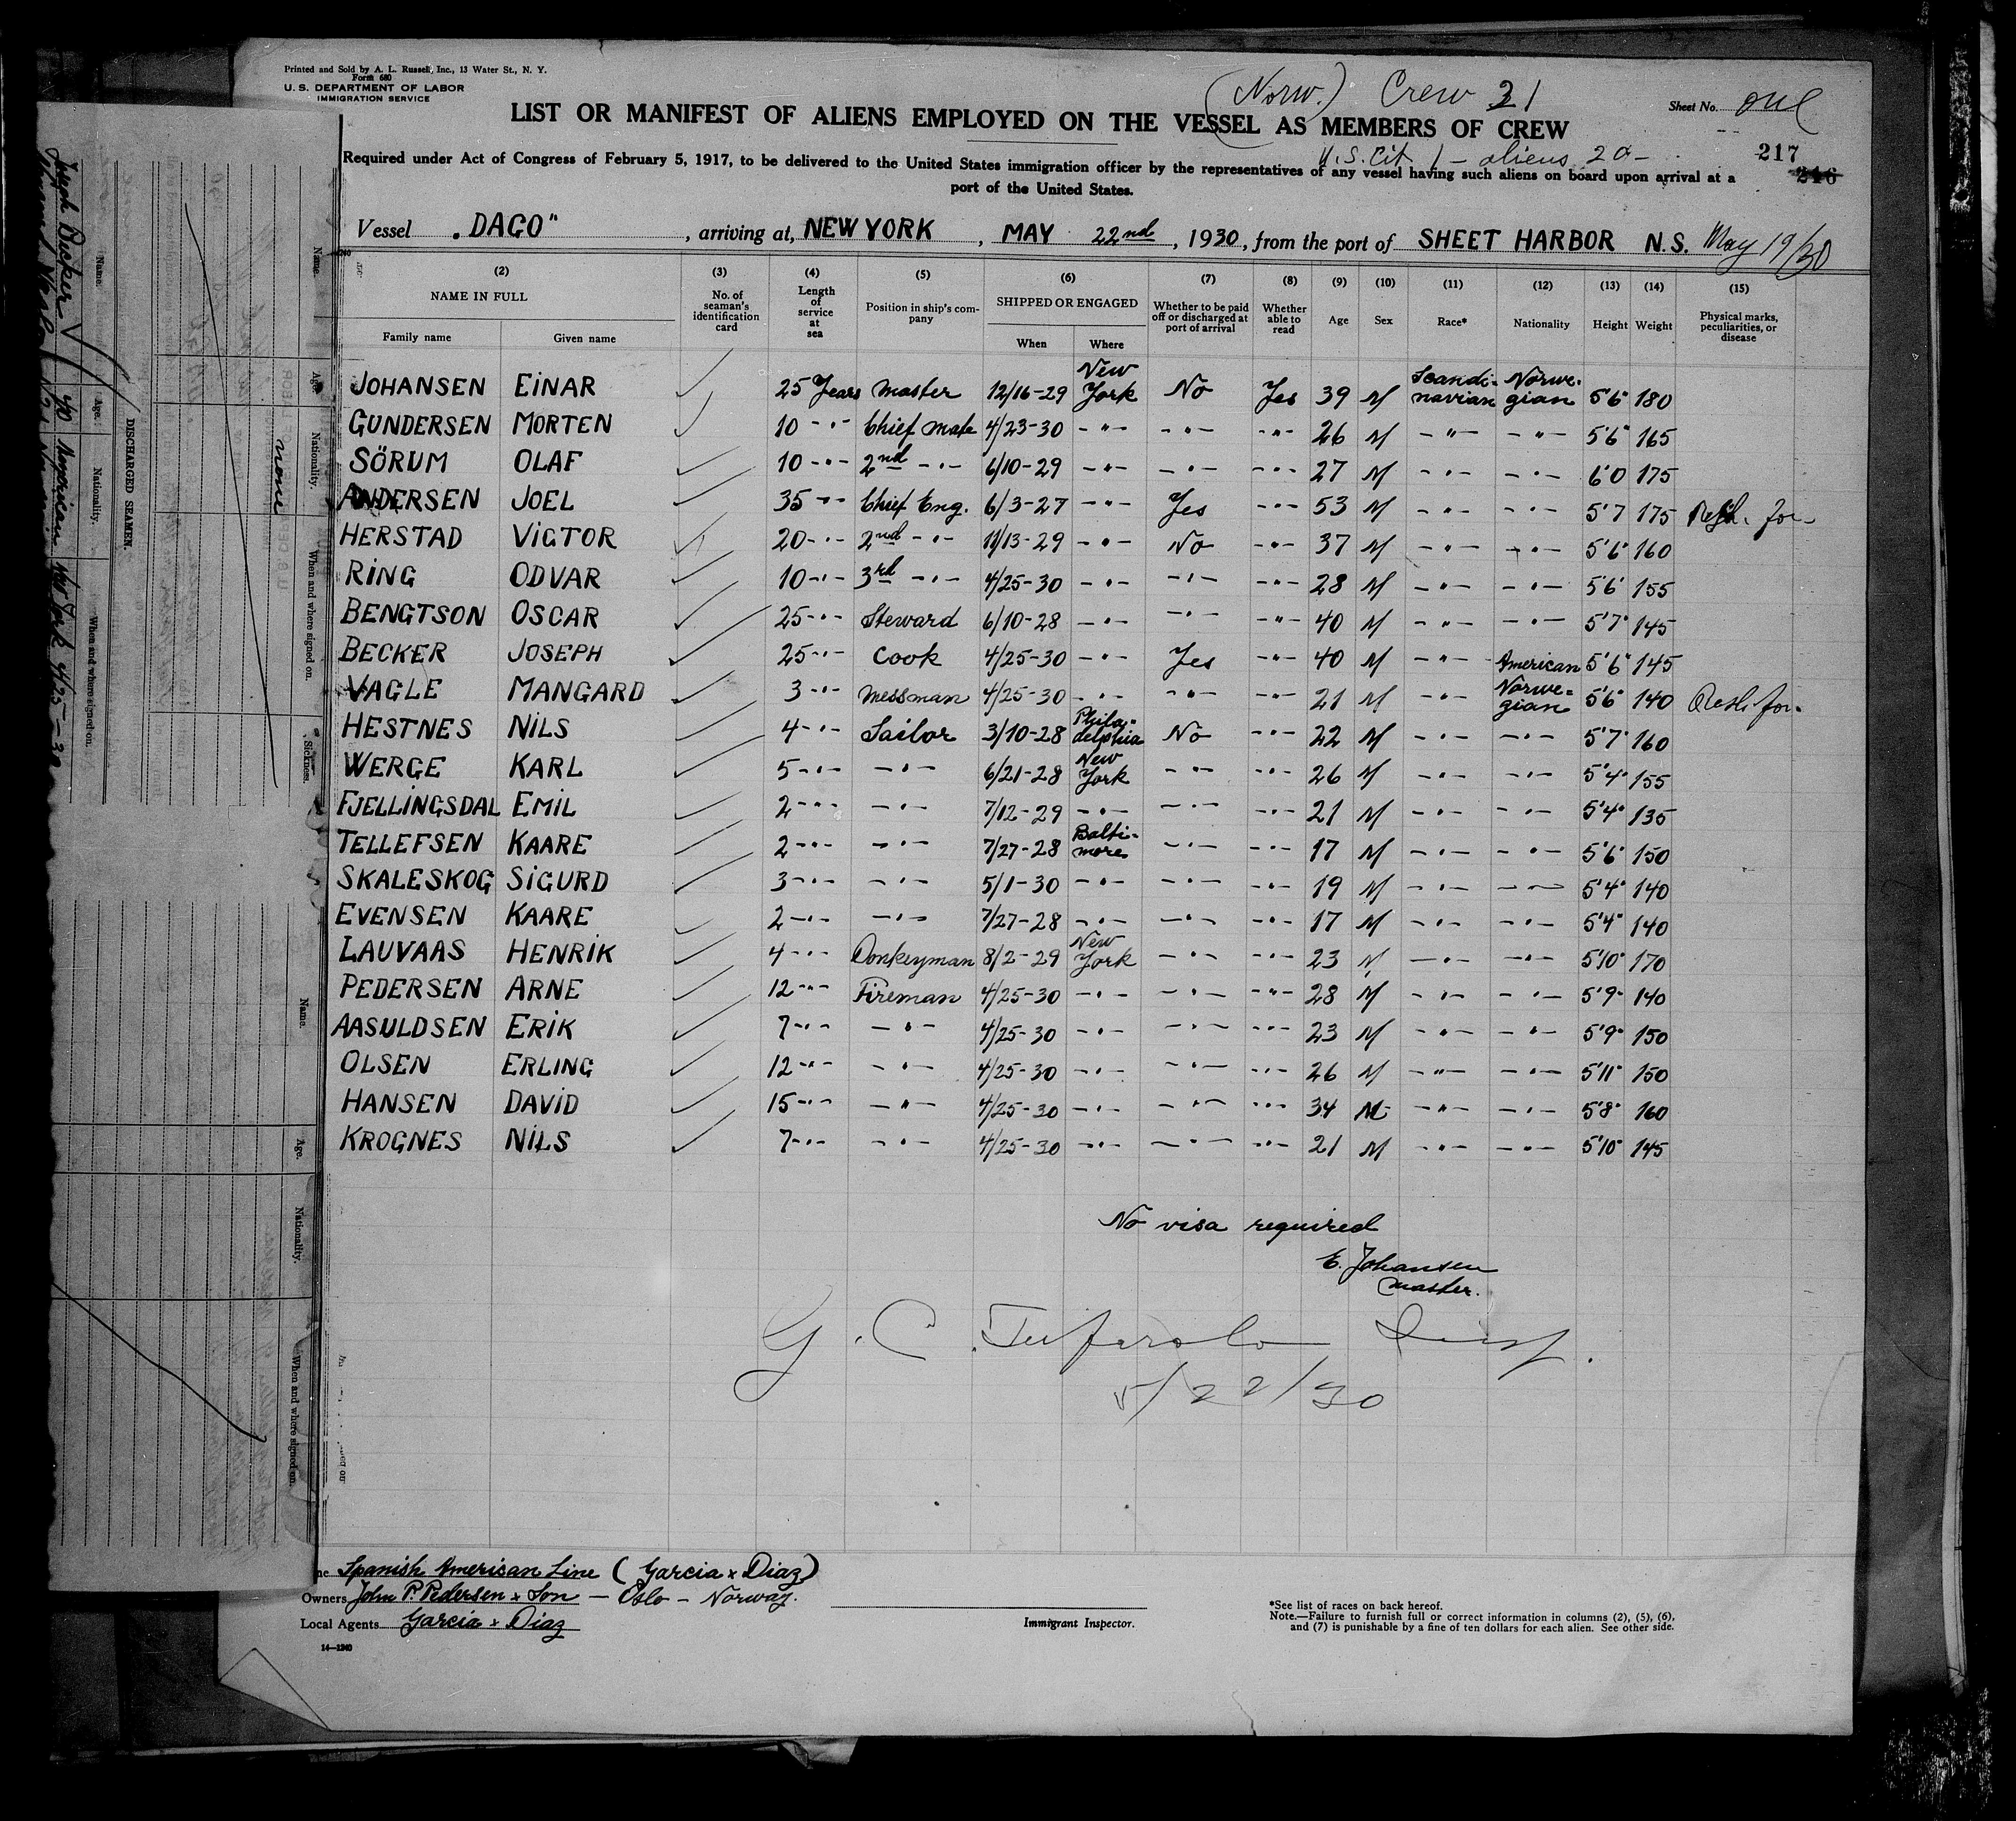 Printed and Sold by A. L. Russell, Inc., 13 Water St., N. Y.
Form 680
U. S. DEPARTMENT OF LABOR
IMMIGRATION SERVICE
(Norw.) Crew 21
Sheet No. one
LIST OR MANIFEST OF ALIENS EMPLOYED ON THE VESSEL AS MEMBERS OF CREW
U.S. Cit 1 - aliens 20 -
217
246
Required under Act of Congress of February 5, 1917, to be delivered to the United States immigration officer by the representatives of any vessel having such aliens on board upon arrival at a
port of the United States.
Vessel "DAGO", arriving at, NEW YORK, MAY 22nd, 1930, from the port of SHEET HARBOR N.S. May 19/30
(2) (3) (4) (5) (6) (7) (8) (9) (10) (11) (12) (13) (14) (15)
NAME IN FULL
Family name Given name
No. of seaman's identification card
Length of service at sea
Position in ship's company
SHIPPED OR ENGAGED
When Where
Whether to be paid off or discharged at port of arrival
Whether able to read
Age Sex Race* Nationality Height Weight
Physical marks, peculiarities, or disease
JOHANSEN EINAR 25 Years Master 12/16-29 New York No Yes 39 M Scandinavian Norwegian 5'6" 180
GUNDERSEN MORTEN 10 -"- Chief Mate 4/23-30 -"- -"- -"- 26 M -"- -"- 5'6" 165
SÖRUM OLAF 10 -"- 2nd -"- 6/10-29 -"- -"- -"- 27 M -"- -"- 6'0 175
ANDERSEN JOEL 35 -"- Chief Eng. 6/3-27 -"- Yes -"- 53 M -"- -"- 5'7 175 Resh. for-
HERSTAD VICTOR 20 -"- 2nd -"- 11/13-29 -"- No -"- 37 M -"- -"- 5'6" 160
RING ODVAR 10 -"- 3rd -"- 4/25-30 -"- -"- -"- 28 M -"- -"- 5'6" 155
BENGTSON OSCAR 25 -"- Steward 6/10-28 -"- -"- -"- 40 M -"- -"- 5'7" 145
BECKER JOSEPH 25 -"- Cook 4/25-30 -"- Yes -"- 40 M -"- American 5'6" 145
VAGLE MANGARD 3 -"- Messman 4/25-30 -"- -"- -"- 21 M -"- Norwegian 5'6" 140 Resh. for-
HESTNES NILS 4 -"- Sailor 3/10-28 Philadelphia No -"- 22 M -"- -"- 5'7" 160
WERGE KARL 5 -"- -"- 6/21-28 New York -"- -"- 26 M -"- -"- 5'4" 155
FJELLINGSDAL EMIL 2 -"- -"- 7/12-29 -"- -"- -"- 21 M -"- -"- 5'4" 135
TELLEFSEN KAARE 2 -"- -"- 7/27-28 Baltimore -"- -"- 17 M -"- -"- 5'6" 150
SKALESKOG SIGURD 3 -"- -"- 5/1-30 -"- -"- -"- 19 M -"- -"- 5'4" 140
EVENSEN KAARE 2 -"- -"- 7/27-28 -"- -"- -"- 17 M -"- -"- 5'4" 140
LAUVAAS HENRIK 4 -"- Donkeyman 8/2-29 New York -"- -"- 23 M -"- -"- 5'10" 170
PEDERSEN ARNE 12 -"- Fireman 4/25-30 -"- -"- -"- 28 M -"- -"- 5'9" 140
AASULDSEN ERIK 7 -"- -"- 4/25-30 -"- -"- -"- 23 M -"- -"- 5'9" 150
OLSEN ERLING 12 -"- -"- 4/25-30 -"- -"- -"- 26 M -"- -"- 5'11" 150
HANSEN DAVID 15 -"- -"- 4/25-30 -"- -"- -"- 34 M -"- -"- 5'8" 160
KROGNES NILS 7 -"- -"- 4/25-30 -"- -"- -"- 21 M -"- -"- 5'10" 145
No visa required
E. Johansen
Master.
5/22/30
Spanish American Line (Garcia & Diaz)
Owners John P. Pedersen & Son - Oslo - Norway.
Local Agents Garcia & Diaz
14-1240
Immigrant Inspector.
*See list of races on back hereof.
Note.—Failure to furnish full or correct information in columns (2), (5), (6),
and (7) is punishable by a fine of ten dollars for each alien. See other side.
DISCHARGED SEAMEN.
Name. Age. Nationality. When and where signed on.
Joseph Becker 40 American New York 4/25-30
Name. Age. Nationality. When and where signed on. Sickness.
none
Name. Age. Nationality. When and where signed on.